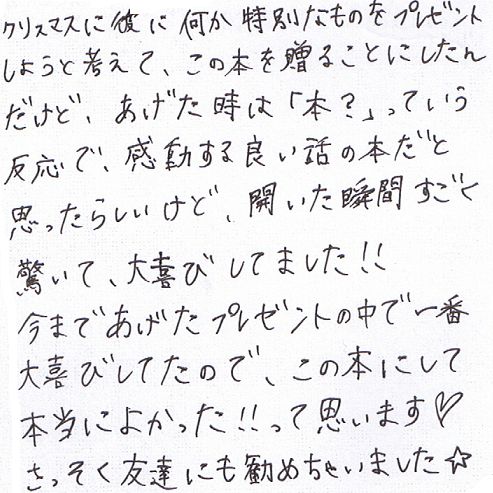 クリスマスに彼に何か特別なものをプレゼント
しようと考えて、この本を贈ることにしたん
だけど、あげた時は「本？」っていう
反応で、感動する良い話の本だと
思ったらしいけど、開いた瞬間すごく
驚いて、大喜びしてました!!
今まであげたプレゼントの中で一番
大喜びしてたので、この本にして
本当によかった!!って思います♡
さっそく友達にも勧めちゃいました☆